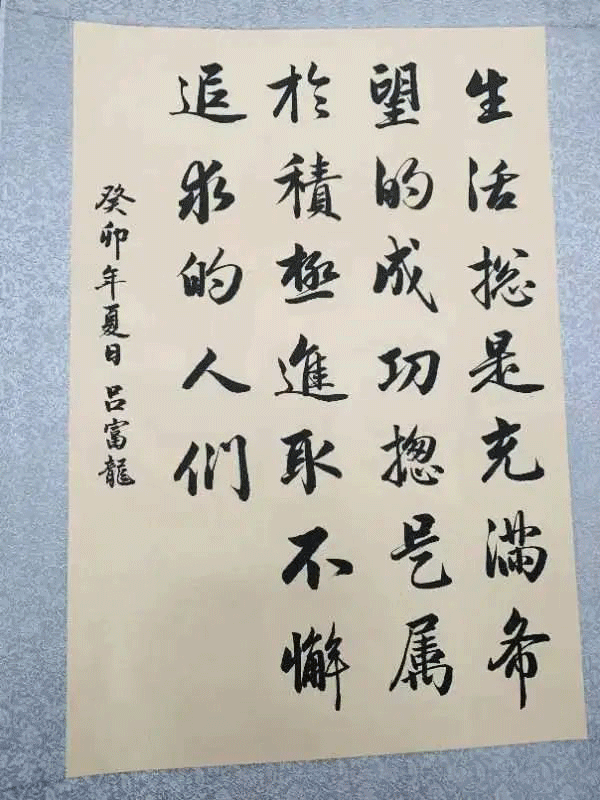 生活摠是充滿希
望的成功摠是属
於積極進取不懈
追求的人们
癸卯年夏日吕富龍